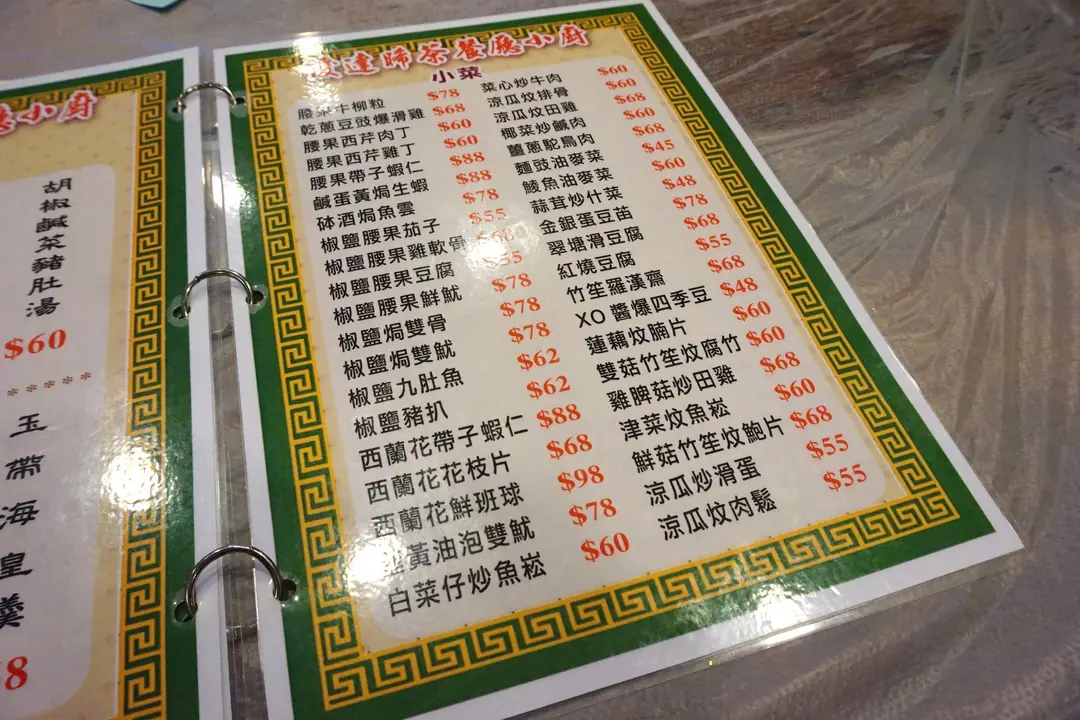 小廚
胡椒鹹菜豬肚湯
$60
*****
玉帶海皇羹
8
達晞茶餐廳小廚
小菜
腰果牛柳粒 $78
乾蔥豆豉爆滑雞 $68
腰果西芹肉丁 $60
腰果西芹雞丁 $60
腰果帶子蝦仁 $88
鹹蛋黃焗生蝦 $88
砵酒焗魚雲 $78
椒鹽腰果茄子 $55
椒鹽腰果雞軟骨 $68
椒鹽腰果豆腐 $55
椒鹽腰果鮮魷 $78
椒鹽焗雙骨 $78
椒鹽焗雙魷 $78
椒鹽九肚魚 $62
椒鹽豬扒 $62
西蘭花帶子蝦仁 $88
西蘭花花枝片 $68
西蘭花鮮班球 $98
黃油泡雙魷 $78
白菜仔炒魚崧 $60
菜心炒牛肉 $60
涼瓜炆排骨 $60
涼瓜炆田雞 $68
椰菜炒鹹肉 $60
薑蔥駝鳥肉 $68
麵豉油麥菜 $45
鯪魚油麥菜 $60
蒜茸炒什菜 $48
金銀蛋豆苗 $78
翠塘滑豆腐 $68
紅燒豆腐 $55
竹笙羅漢齋 $68
XO 醬爆四季豆 $48
蓮藕炆腩片 $60
雙菇竹笙炆腐竹 $60
雞脾菇炒田雞 $68
津菜炆魚崧 $60
鮮菇竹笙炆鮑片 $68
涼瓜炒滑蛋 $55
涼瓜炆肉鬆 $55